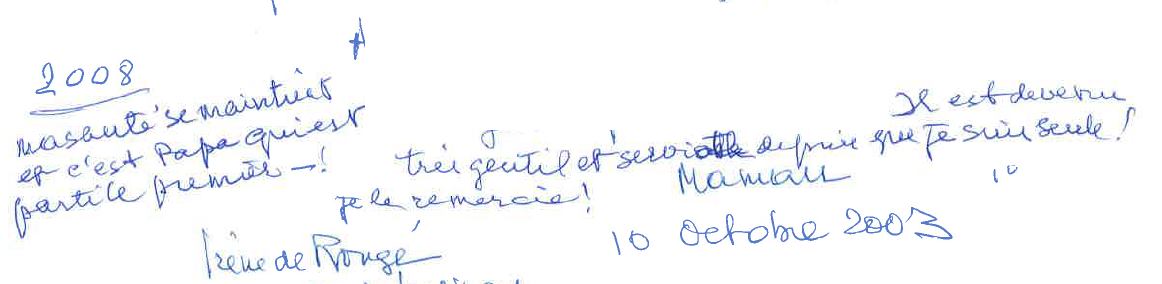 2008
ma santé se maintient
et c'est Papa qui est
parti le premier —!
Il est devenu
très gentil et serviable depuis que je suis seule!
je le remercie!
Maman
Irène de Rougé
10 Octobre 2003